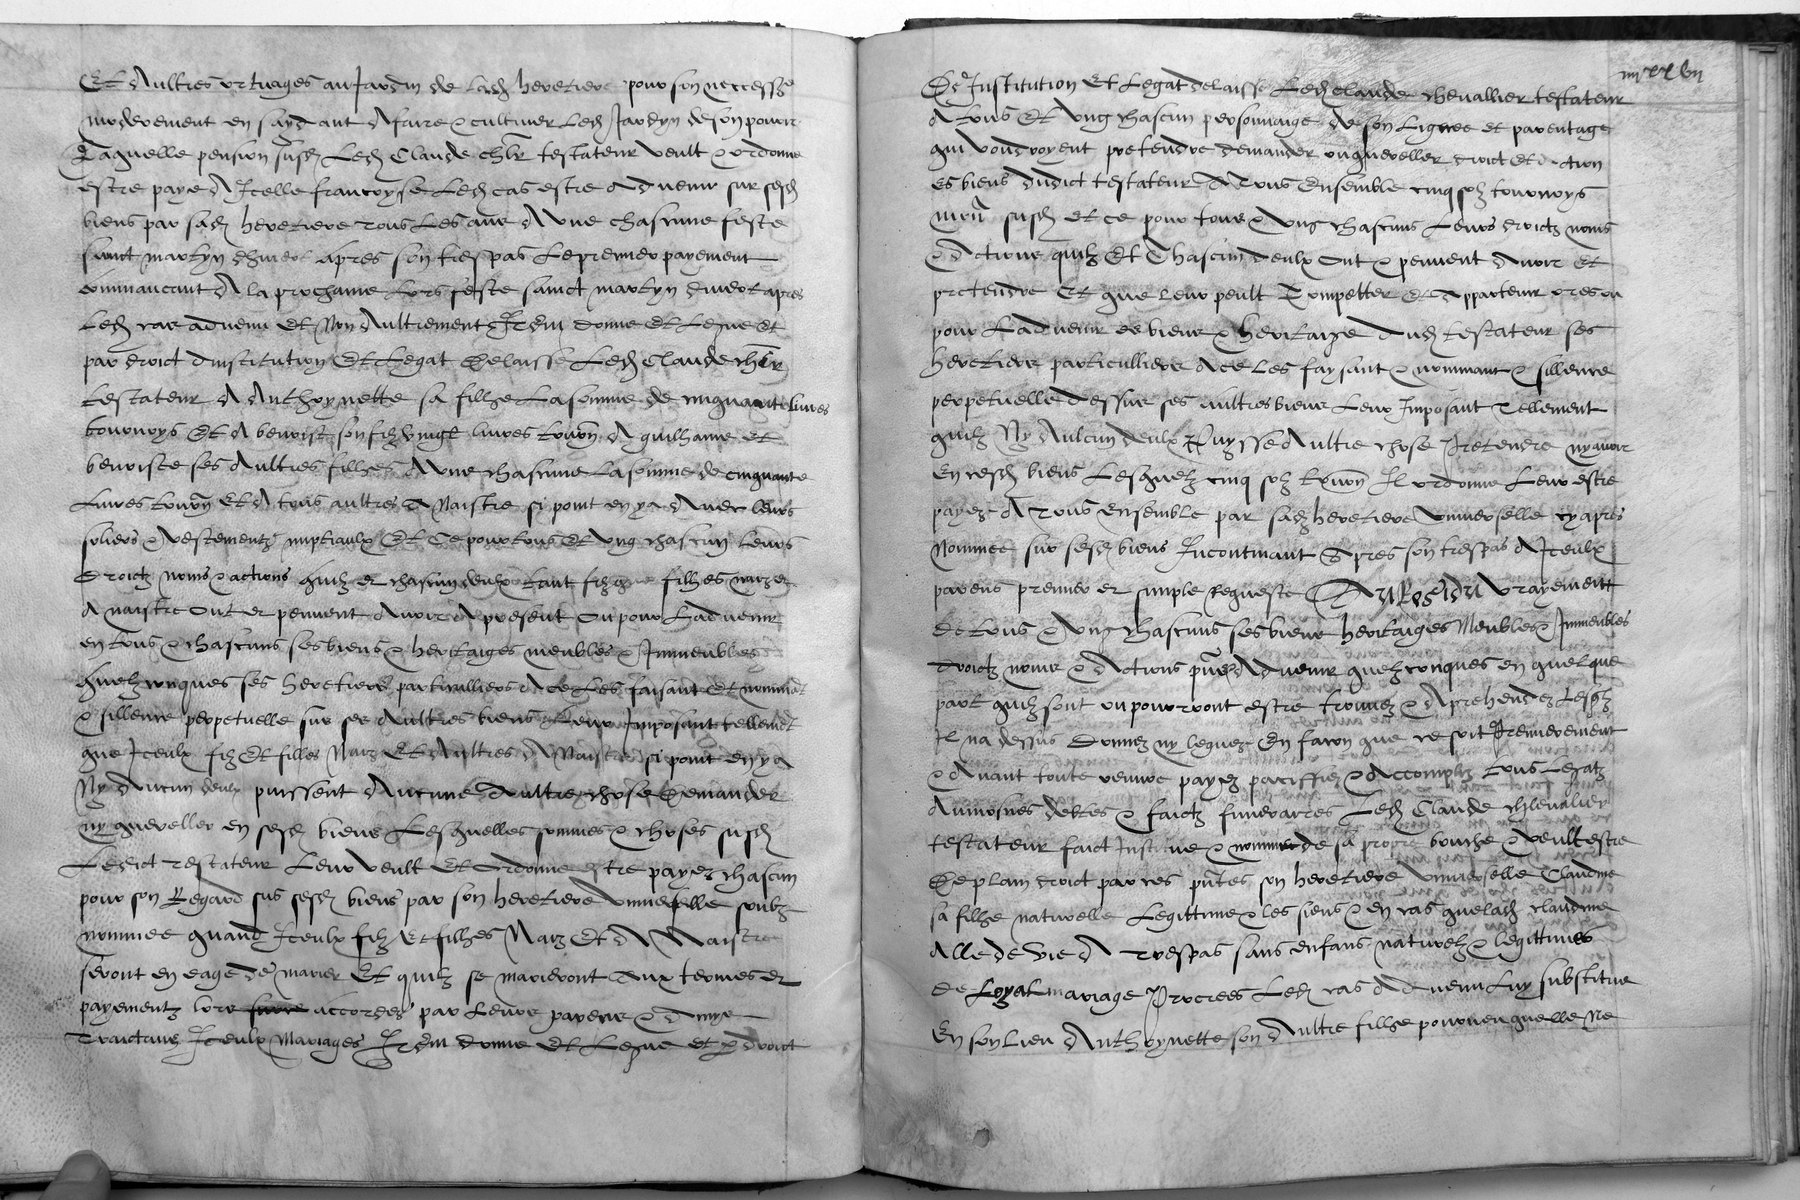 Et aultres ortaiges au Jardin de lad heretiere pour son neccesse
moderement en saydant a faire & cultiver led Jardin de son pouvoir
Laquelle pension susd Led Claude chlr testateur veult & ordonne
estre paye a Jcelle francoyse Led cas estre advenu sur sesd
biens par sad heretiere tous les ans a une chascune feste
sainct martyn dhiver apres son trespas Le premier payement
commancant a la prochaine Lors feste sainct martyn divert apres
Led cas advenu et Non aultrement Jtem donne et Legue et
par droict dinstitution et Legat delaisse Led Claude chlr
testateur a Anthoynette sa filhe La somme de cinquante Livres
tournoys Et a benoist son filz vingt livres tourn A guilhame et
benoiste ses aultres filhes a une chascune La somme de cinquante
Livres tourn Et a tous aultres a Naistre si point en y a avec leurs
soliers & vestementz nuptiaulx Et ce pour tous et ung chascun Leurs
droictz noms & actions quilz et chascun deulx tant filz que filhes naiz et
a naistre ont et peuvent avoir a present ou pour Ladvenir
en tous & chascuns ses biens & heritaiges meubles & Jmmeubles
quelzconques ses heretiers particulliers a ce Les faisant Et nommant
& sillence perpetuelle sur ses aultres biens Leur Jmposant tellemet
que Jceulx filz Et filles Naiz Et aultres a Naistre si point en y a
Ny aucun deulx puissent aucune aultre chose demander
ny quereller en sesd biens Lesquelles sommes & choses susd
Ledict testateur Leur veult Et ordonne estre payez chascun
pour son Regard sus sesd biens par son heretiere universelle soubz
nommee quand Jceulx filz et filhes Naiz Et a Naistre
seront en eage de marier Et quilz se marieront aux termes et
payementz lors accordes par Leurs parens & amys
traictans Jceulx mariages Jtem donne et Legue et p droict
iiii xx vii
De Jnstitution Et Legat delaisse Led Claude chevallier testateur
a tous Et ung chascun personnaige de son Lignee et parentage
qui voudroyent pretendre demander ou quereller droict et action
es biens dudict testateur a tous Ensemble cinq solz tournoys
mon susd et ce pour tous & ung chascuns Leurs droictz noms
& actions quilz Et chascun deulx Ont & peuvent avoir Et
pretendre Et que leur peult Competter Et apparteni ores ou
pour Ladvenir es biens & heritaige dud testateur ses
heretiers particulliers a ce Les faysant & nommant & sillence
perpetuelle dessur ses aultres biens Leur Jmposant tellement
quilz Ny aulcun deulx Puysse aultre chose Pretendre ny avoir
En cesd biens Lesquelz cinq solz tourn Jl ordonne Leur estre
payez a tous ensemble par sad heretiere universelle cy apres
Nommee sur sesd biens Jncontinant apres son trespas a Jceulx
parens premier et simple Requeste Au Residu vrayement
de tous & ung chascuns ses biens heritaiges Meubles & Jmmeubles
droictz noms & actions pns & advenir quelzconques en quelque
part quilz sont ou pourront estre trouvez & aprehendez Lesqlz
Jl na dessus donnez ny leguez En facon que ce soit Premierement
& avant toute oeuvre payez paciffiez & accompliz tous Legatz
aumosnes debtes & faictz funeraires Led Claude chevalier
testateur faict Jnstitue & nomme de sa propre bouche & veult estre
De plain droict par ces pntes son heretiere universelle Claudine
sa filhe naturelle Legittime & les siens & en cas que lad claudine
alle de vie a trespas sans enfans naturelz & legittimes
de Loyal mariage Procrees Led cas advenu Luy substitue
En son lieu Anthoynette son aultre filhe pourveu quelle Ne